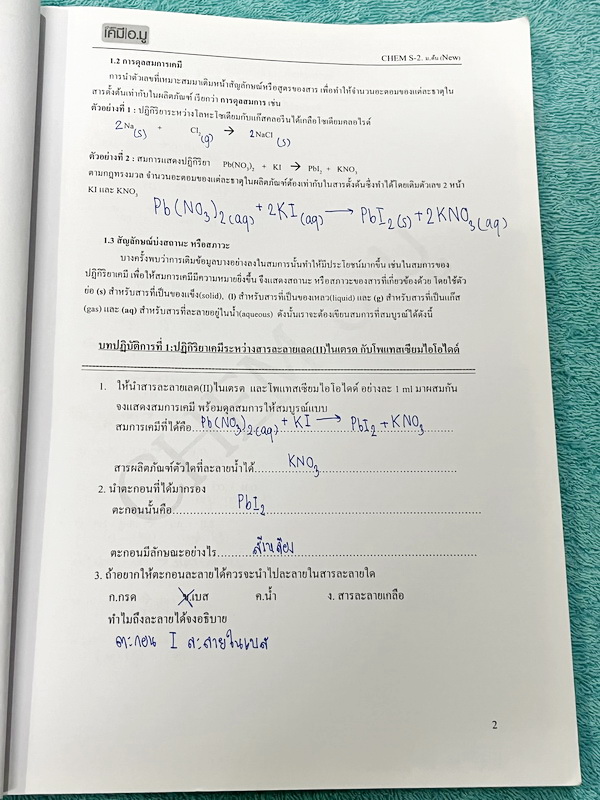 เคมี อ.มู
CHEM S-2. ม.ต้น (New)
1.2 การดุลสมการเคมี
การนำตัวเลขที่เหมาะสมมาเติมหน้าสัญลักษณ์หรือสูตรของสาร เพื่อทำให้จำนวนอะตอมของแต่ละธาตุใน
สารตั้งต้นเท่ากับในผลิตภัณฑ์ เรียกว่า การดุลสมการ เช่น
ตัวอย่างที่ 1 : ปฏิกิริยาระหว่างโลหะโซเดียมกับแก๊สคลอรีนได้เกลือโซเดียมคลอไรด์
2Na(s) + Cl2(g) → 2NaCl(s)
ตัวอย่างที่ 2 : สมการแสดงปฏิกิริยา Pb(NO3)2 + KI → PbI2 + KNO3
ตามกฎทรงมวล จำนวนอะตอมของแต่ละธาตุในผลิตภัณฑ์ต้องเท่ากับในสารตั้งต้นซึ่งทำได้โดยเติมตัวเลข 2 หน้า
KI และ KNO3
Pb(NO3)2(aq) + 2KI(aq) → PbI2(s) + 2KNO3(aq)
1.3 สัญลักษณ์บ่งสถานะ หรือสภาวะ
บางครั้งพบว่าการเติมข้อมูลบางอย่างลงในสมการนั้นทำให้มีประโยชน์มากขึ้น เช่นในสมการของ
ปฏิกิริยาเคมี เพื่อให้สมการเคมีมีความหมายยิ่งขึ้น จึงแสดงสถานะ หรือสภาวะของสารที่เกี่ยวข้องด้วย โดยใช้ตัว
ย่อ (s) สำหรับสารที่เป็นของแข็ง(solid), (l) สำหรับสารที่เป็นของเหลว(liquid) และ (g) สำหรับสารที่เป็นแก๊ส
(gas) และ (aq) สำหรับสารที่ละลายอยู่ในน้ำ(aqueous) ดังนั้นเราจะต้องเขียนสมการที่สมบูรณ์ได้ดังนี้
บทปฏิบัติการที่ 1:ปฏิกิริยาเคมีระหว่างสารละลายเลด(II)ไนเตรต กับโพแทสเซียมไอโอไดด์
1. ให้นำสารละลายเลด(II)ไนเตรต และโพแทสเซียมไอโอไดด์ อย่างละ 1 ml มาผสมกัน
จงแสดงสมการเคมี พร้อมดุลสมการให้สมบูรณ์แบบ
สมการเคมีที่ได้คือ Pb(NO3)2(aq) + KI → PbI2 + KNO3
สารผลิตภัณฑ์ตัวใดที่ละลายน้ำได้ KNO3
2. นำตะกอนที่ได้มากรอง
ตะกอนนั้นคือ PbI2
ตะกอนมีลักษณะอย่างไร สีเหลือง
3. ถ้าอยากให้ตะกอนละลายได้ควรจะนำไปละลายในสารละลายใด
ก.กรด ข.เบส ค.น้ำ ง. สารละลายเกลือ
ทำไมถึงละลายได้จงอธิบาย
ตะกอน I ละลายในเบส
2